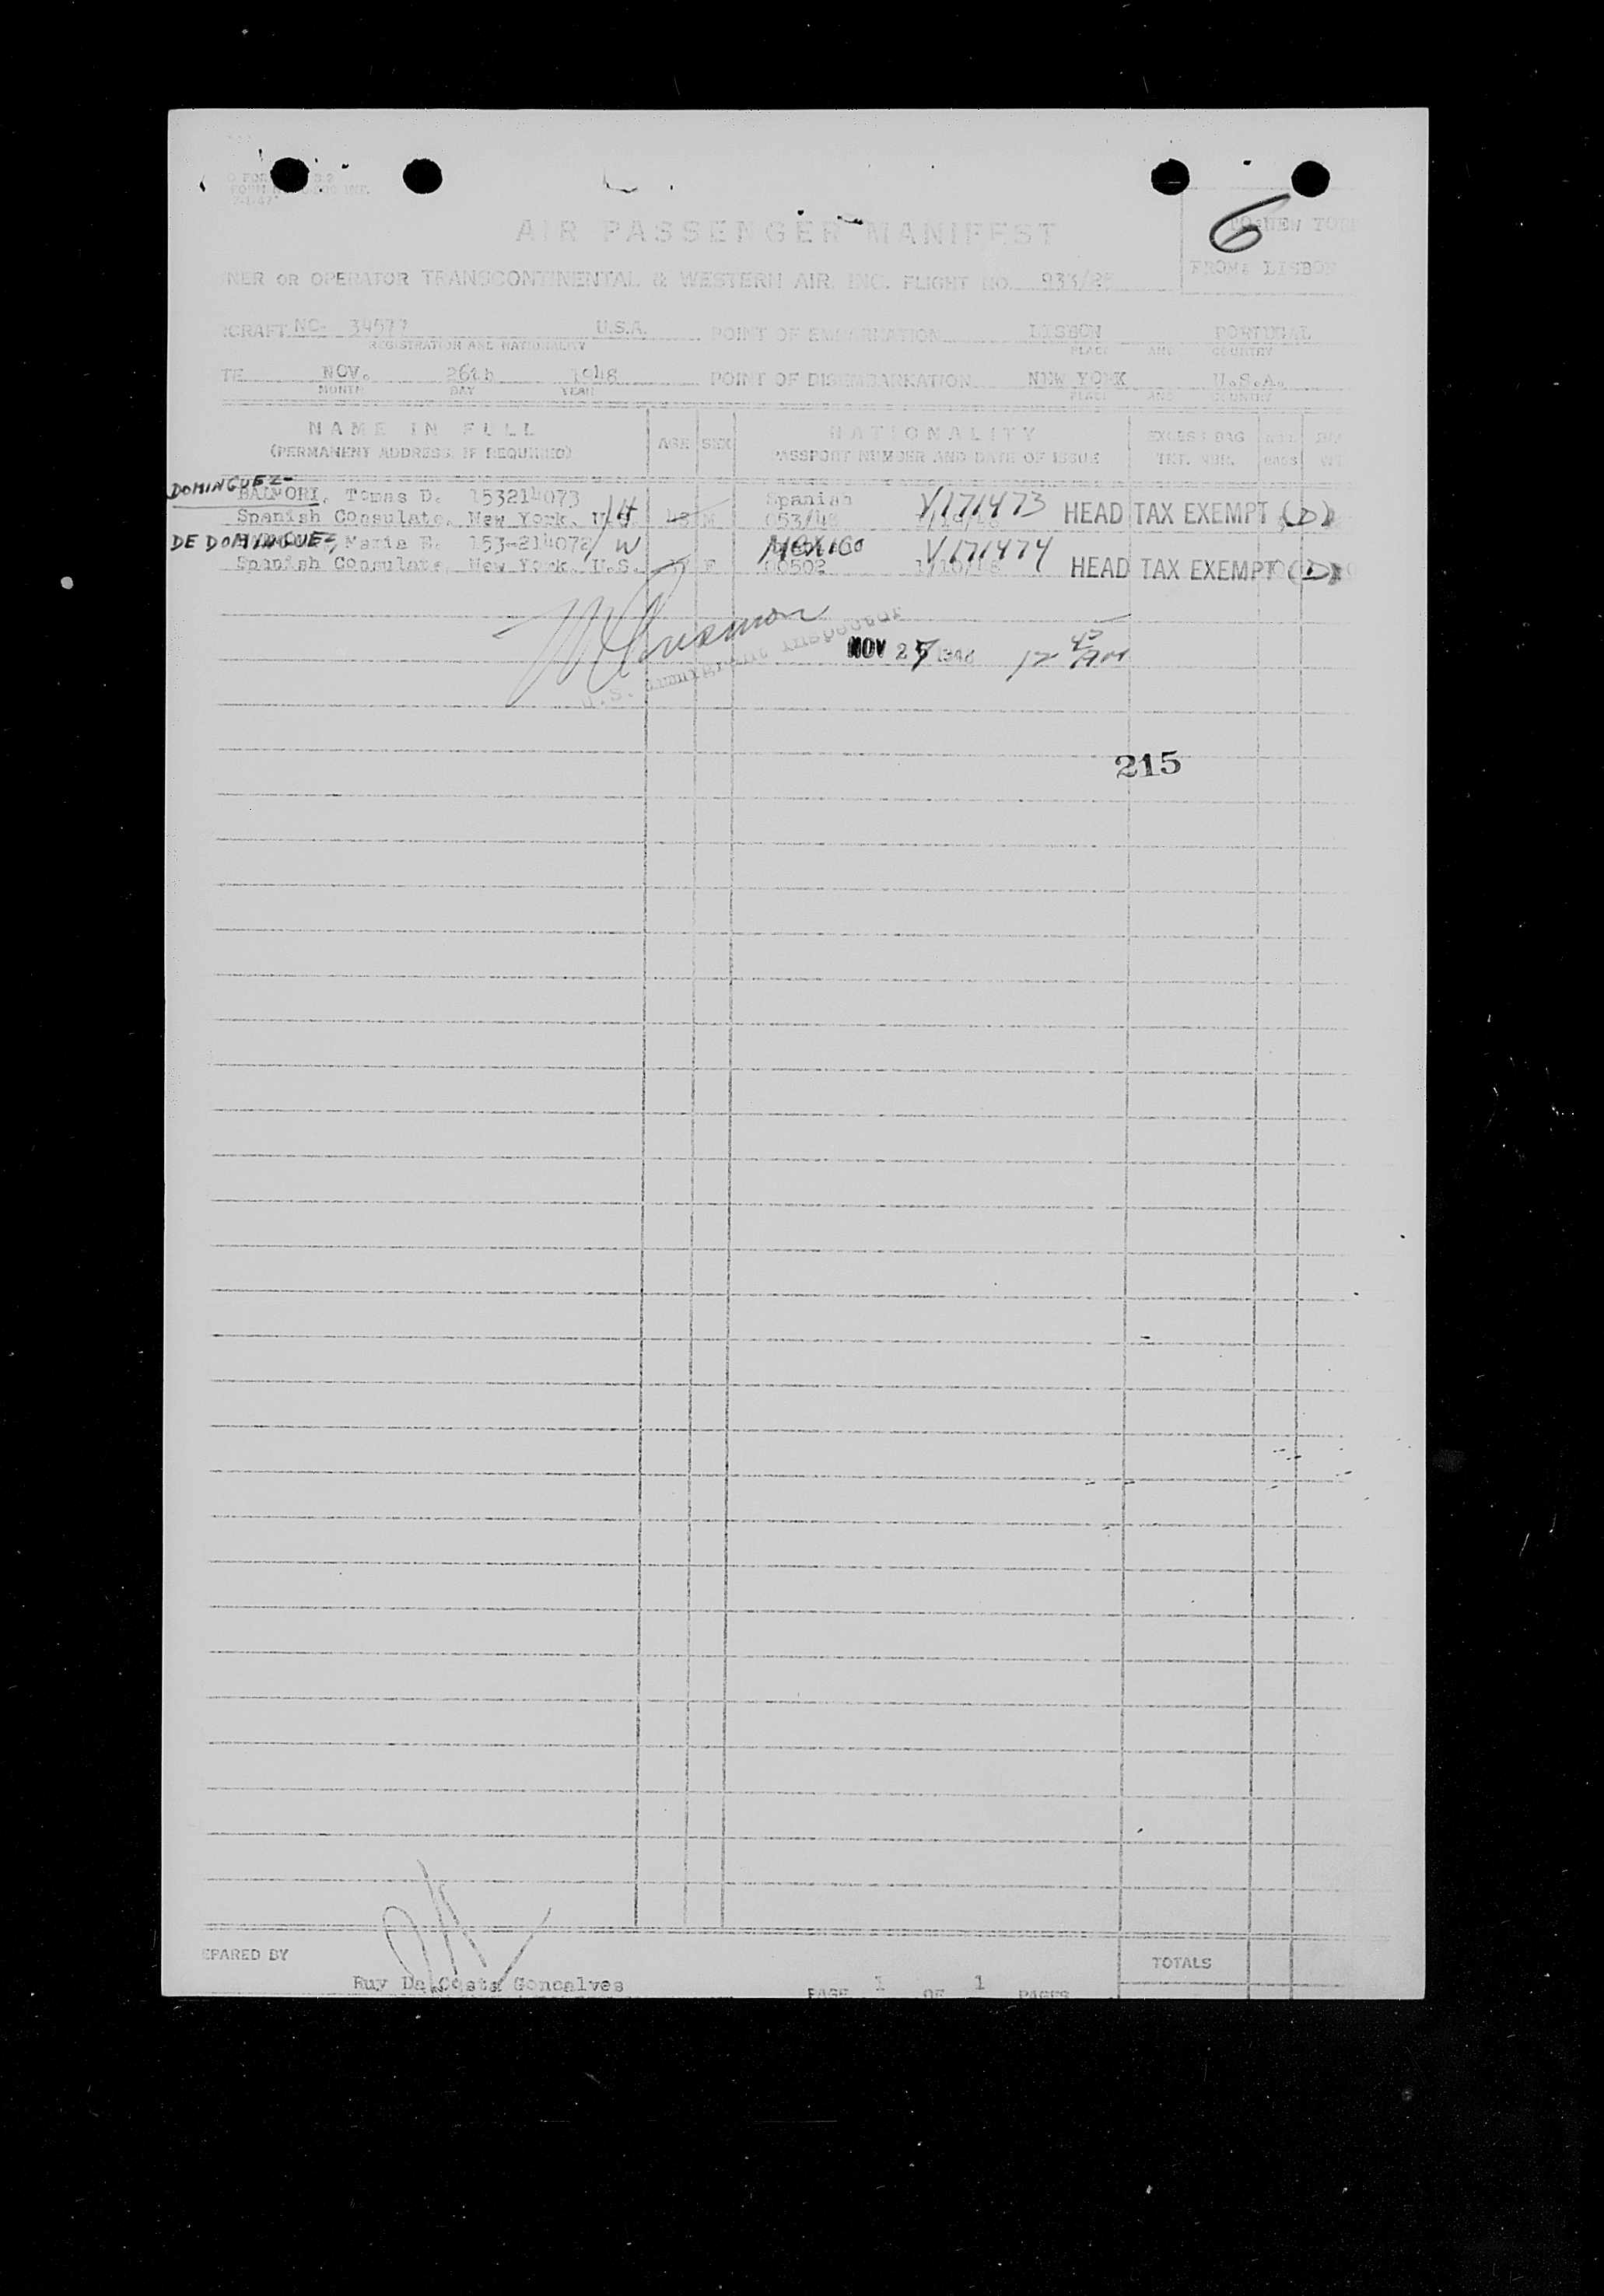 6
TO: NEW YORK
AIR PASSENGER MANIFEST
FROM: LISBON
NER OR OPERATOR TRANSCONTINENTAL & WESTERN AIR, INC. FLIGHT NO. 933/25
CRAFT NC- 34577 U.S.A. POINT OF EMBARKATION LISBON PORTUGAL
REGISTRATION AND NATIONALITY PLACE AND COUNTRY
TE NOV. 26th 1948 POINT OF DISEMBARKATION NEW YORK U.S.A.
MONTH DAY YEAR PLACE AND COUNTRY
NAME IN FULL AGE SEX NATIONALITY EXCESS BAG
(PERMANENT ADDRESS IF REQUIRED) PASSPORT NUMBER AND DATE OF ISSUE TKT. NBR. BAGS WT
DOMINGUEZ-
BALMORI, Tomas D. 153214073 H Spanish V171473 HEAD TAX EXEMPT (D)
Spanish Consulate, New York, 48 M 053/48
DE DOMINGUEZ, Maria E. 153-214072 W MEXICO V171474
Spanish Consulate, New York, U.S. F 00502 HEAD TAX EXEMPT (D)
U.S. Immigrant Inspector
NOV 27 1948 12 45 AM
215
EPARED BY TOTALS
Ruy Da Costa Goncalves PAGE 1 OF 1 PAGES